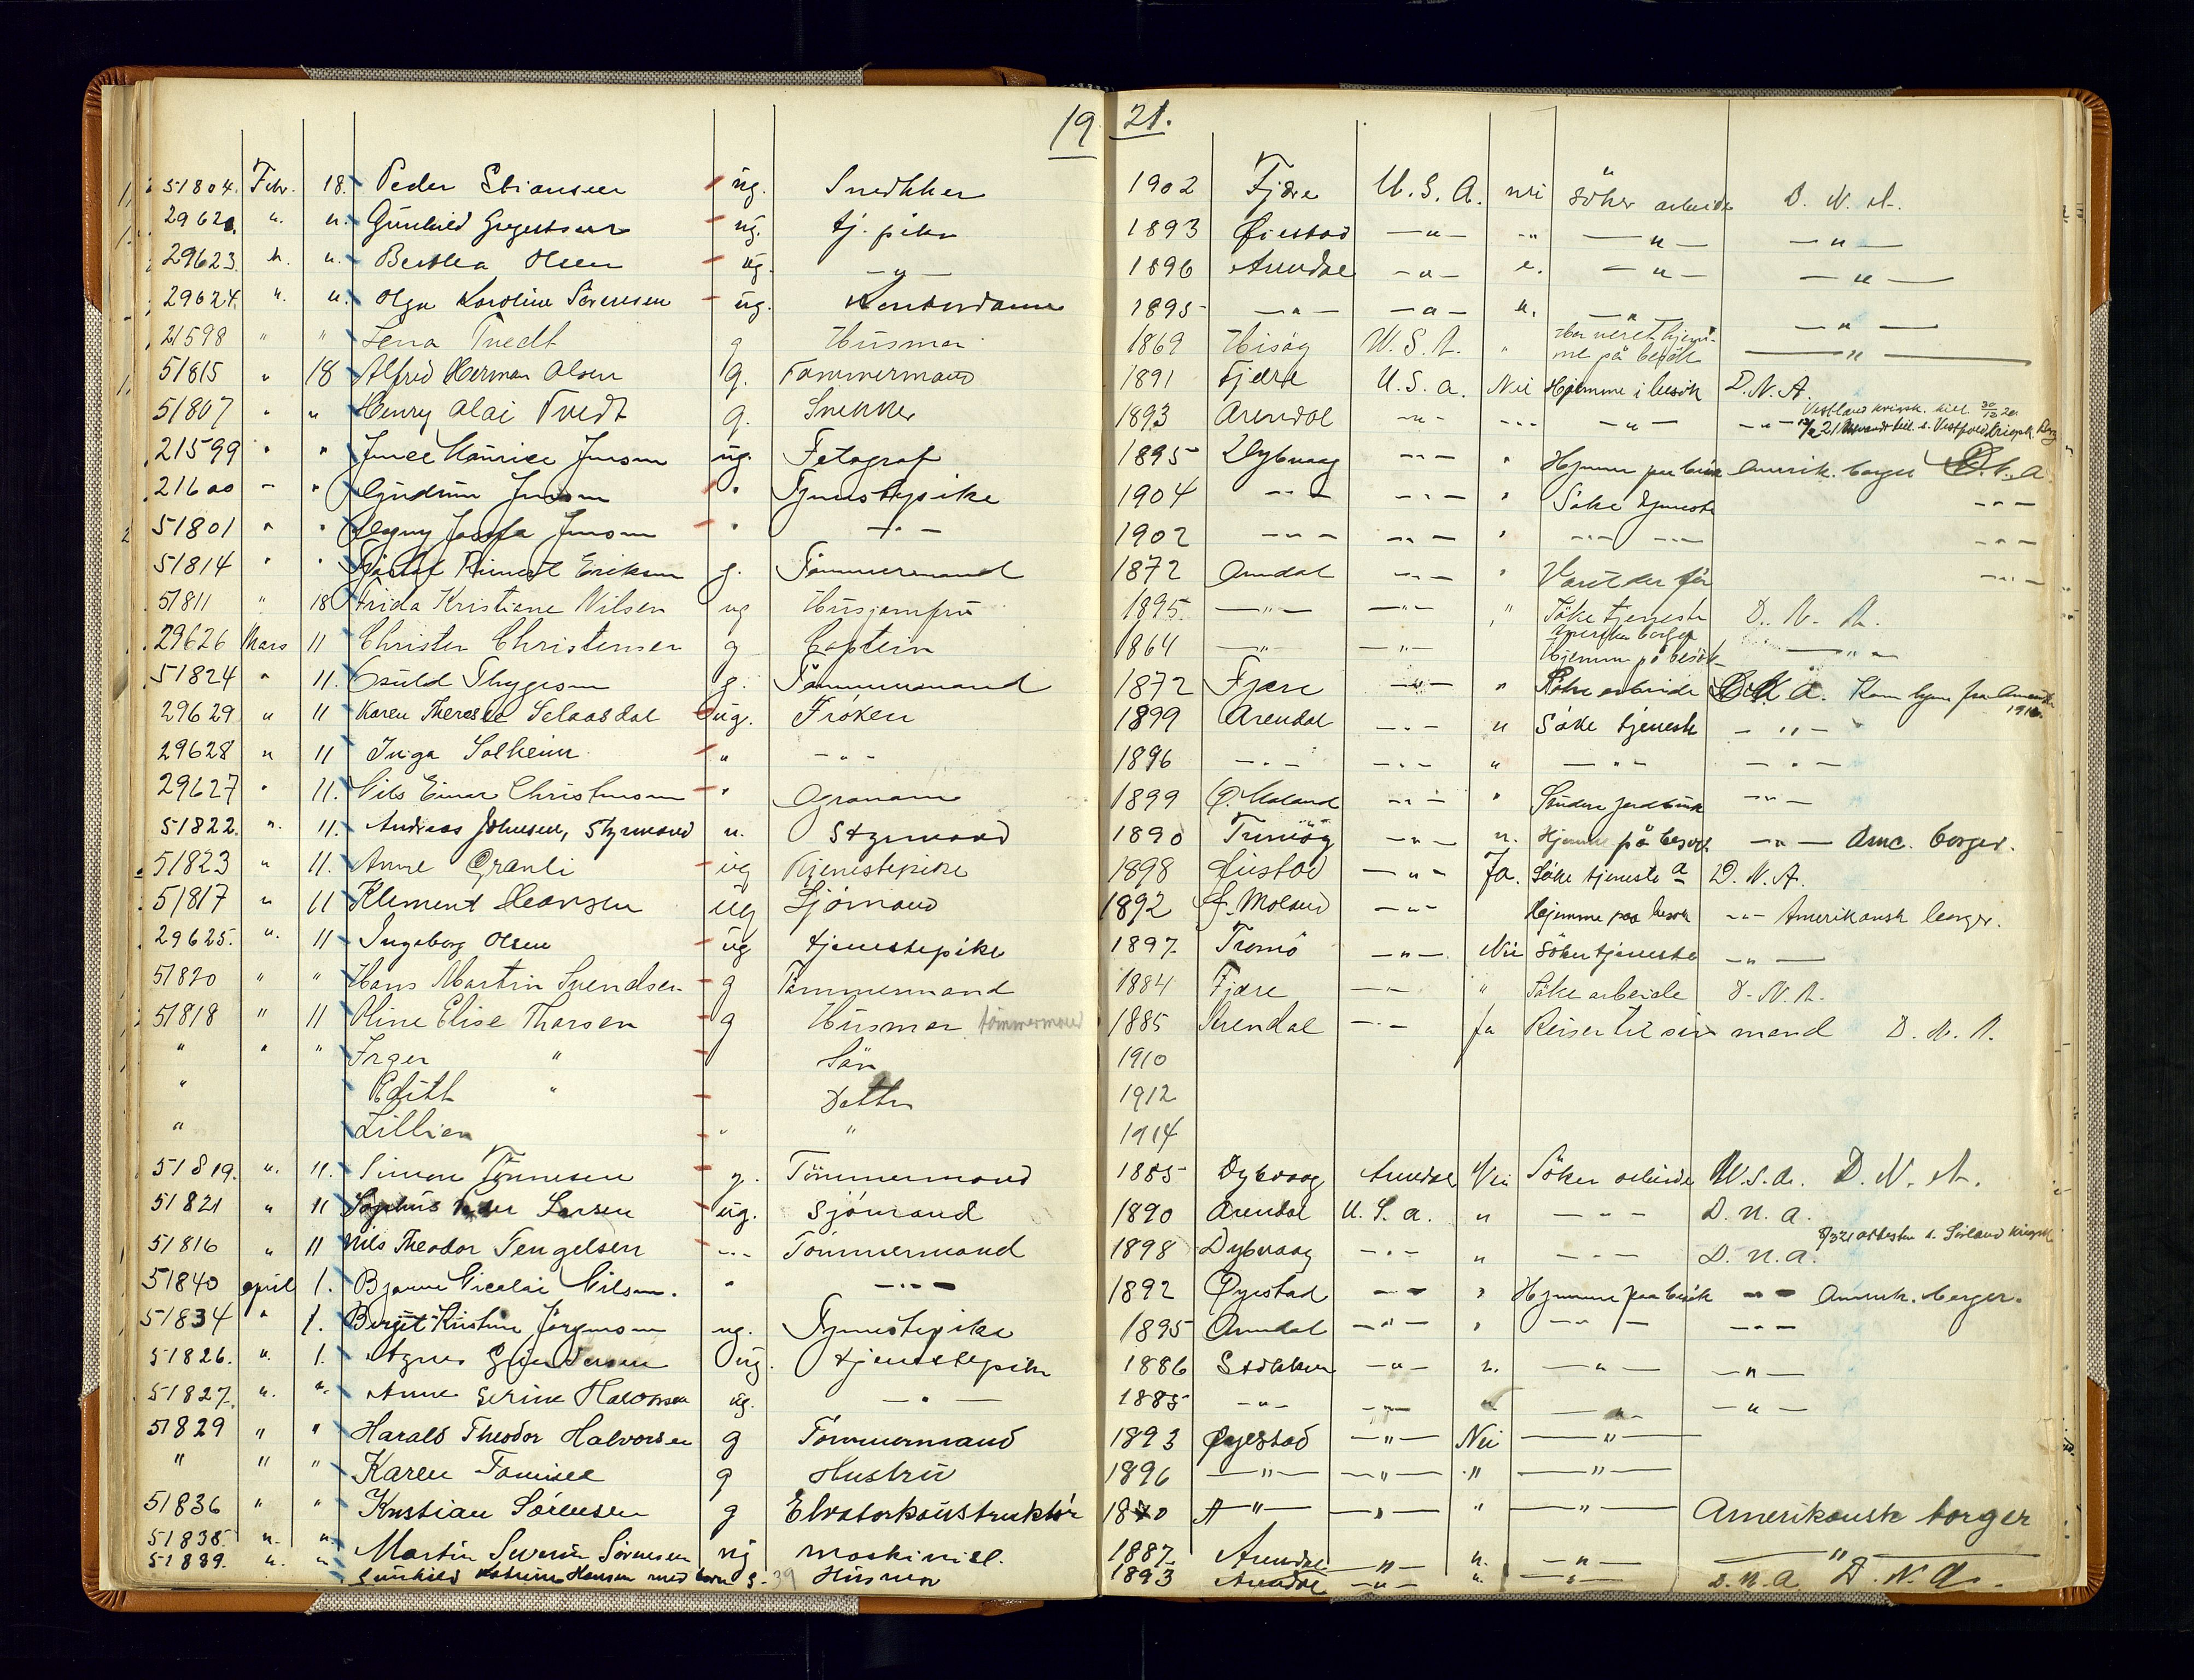 19 21.
51804. Febr. 18. Peder Stiansen ug. Snedkker 1902 Fjære U.S.A. nei söker arbeide D.N.A.
29620. " " Gunhild Gregertsen ug. tj. pike 1893 Öiestad —"— " —"— —"—
29623. " " Bertha Olsen ug. —"— 1896 Arendal —"— " —"— —"—
29624. " " Olga Karoline Sörensen ug. Kontordame 1895 —"— —"— " —"— —"—
21598 " " Lena Tvedt g Husmor 1869 Hisöy U.S.A. " Har veret hjemme på besök —"—
51815 " 18 Alfred Herman Olsen g. Tömmermand 1891 Fjære U.S.a. Nei Hjemme i besök D.N.A.
51807 " " Henry Olai Tvedt g. Snekker 1893 Arendal —"— " —"— —"—
21599 " " Maurice Jensen ug. Fotograf 1895 Dybvaag —"— " Hjemme paa besök Amerik. borger
21600 " " Gudrun Jensen " Tjenestepike 1904 —"— —"— " Söke tjeneste —"—
51801 " " Jensen " —"— 1902 —"— —"— " —"— —"— —"—
51814 " " Eriksen g. Tömmermand 1872 Arendal —"— " Været der för —"—
51811 " 18 Frida Kristiane Nilsen ug Husjomfru 1895 —"— —"— " Söke tjeneste D.N.A.
29626 Mars 11 Christen Christensen g Captein 1864 —"— —"— Amerikan borger Hjemme på besök —"—
51824 " 11. Osuld Thygesen g. Tömmermand 1872 Fjære —"— " Söke arbeide Kom hjem fra Amerik. 1916.
29629 " 11 Karen Therese Selaasdal ug. Fröken 1899 Arendal —"— " Söke tjeneste —"—
29628 " 11 Inga Solheim " —"— 1896 —"— —"— " —"— —"—
29627 " 11. Nils Einar Christensen " Agronom 1899 Ö. Moland —"— " Studere jordbruk —"—
51822. " 11. Andreas Johnsen, Styrmand u. Styrmand 1890 Tromöy —"— " Hjemme på besök —"— Ame. borger.
51823 " 11. Anne Granli ug Tjenestepike 1898 Öiestad —"— Ja. Söke tjeneste D.N.A.
51817 " 11 Klement Hansen ug Sjömand 1892 Moland —"— Hjemme paa besök —"— Amerikansk borger.
29625. " 11 Ingeborg Olsen ug tjenestepike 1897. Tromö —"— Nei söker tjeneste —"—
51820 " " Hans Martin Svendsen g Tömmermand 1884 Fjære —"— " Söke arbeide D.N.A.
51818 " 11 Oline Elise Thorsen g Husmor tömmermand 1885 Arendal —"— ja Reiser til sin mand D.N.A.
" " " Inger " Sön 1910
" Edith " Datter 1912
" Lillian " " 1914
51819. " 11. Simon Tönnesen g. Tömmermand 1885 Dybvaag Arendal Nei Söker arbeide U.S.A. D.N.A.
51821 " 11 Sophus Peder Larsen ug. Sjömand 1890 Arendal U.S.a. " —"— D.N.a.
51816 " 11 Nils Theodor Tengelsen —"— Tömmermand 1898 Dybvaag —"— " —"— D.N.a.
51840 april 1. Bjarne Nicolai Nilsen. " —"— 1892 Öyestad —"— " Hjemme paa besök —"— Amerik. borger.
51834 " 1. Birgit Kristine Jörgensen ug. Tjenestepike 1895 Arendal —"— " —"— —"—
51826. " 1. Agnes Gundersen ug. tjenestepike 1886 Stokken —"— " —"— —"—
51827. " " Anne Serine Halvorsen ug. —"— 1885 —"— —"— " —"— —"—
51829 " " Harald Theodor Halvorsen g Tömmermand 1893 Öyestad —"— Nei —"—
" " " Karen Tomine g Hustru 1896 —"— —"— " —"—
51836 " " Kristian Sörensen g Elvatorkonstruktör A —"— —"— " —"— Amerikansk borger
51838. " " Martin Severin Sörensen ug maskinist. 1887. Arendal —"— " —"— —"—
51839. " " Gunhild Katrine Hansen med barn g. 39 Husmor 1893 Arendal —"— " —"— D.N.A D.N.A.